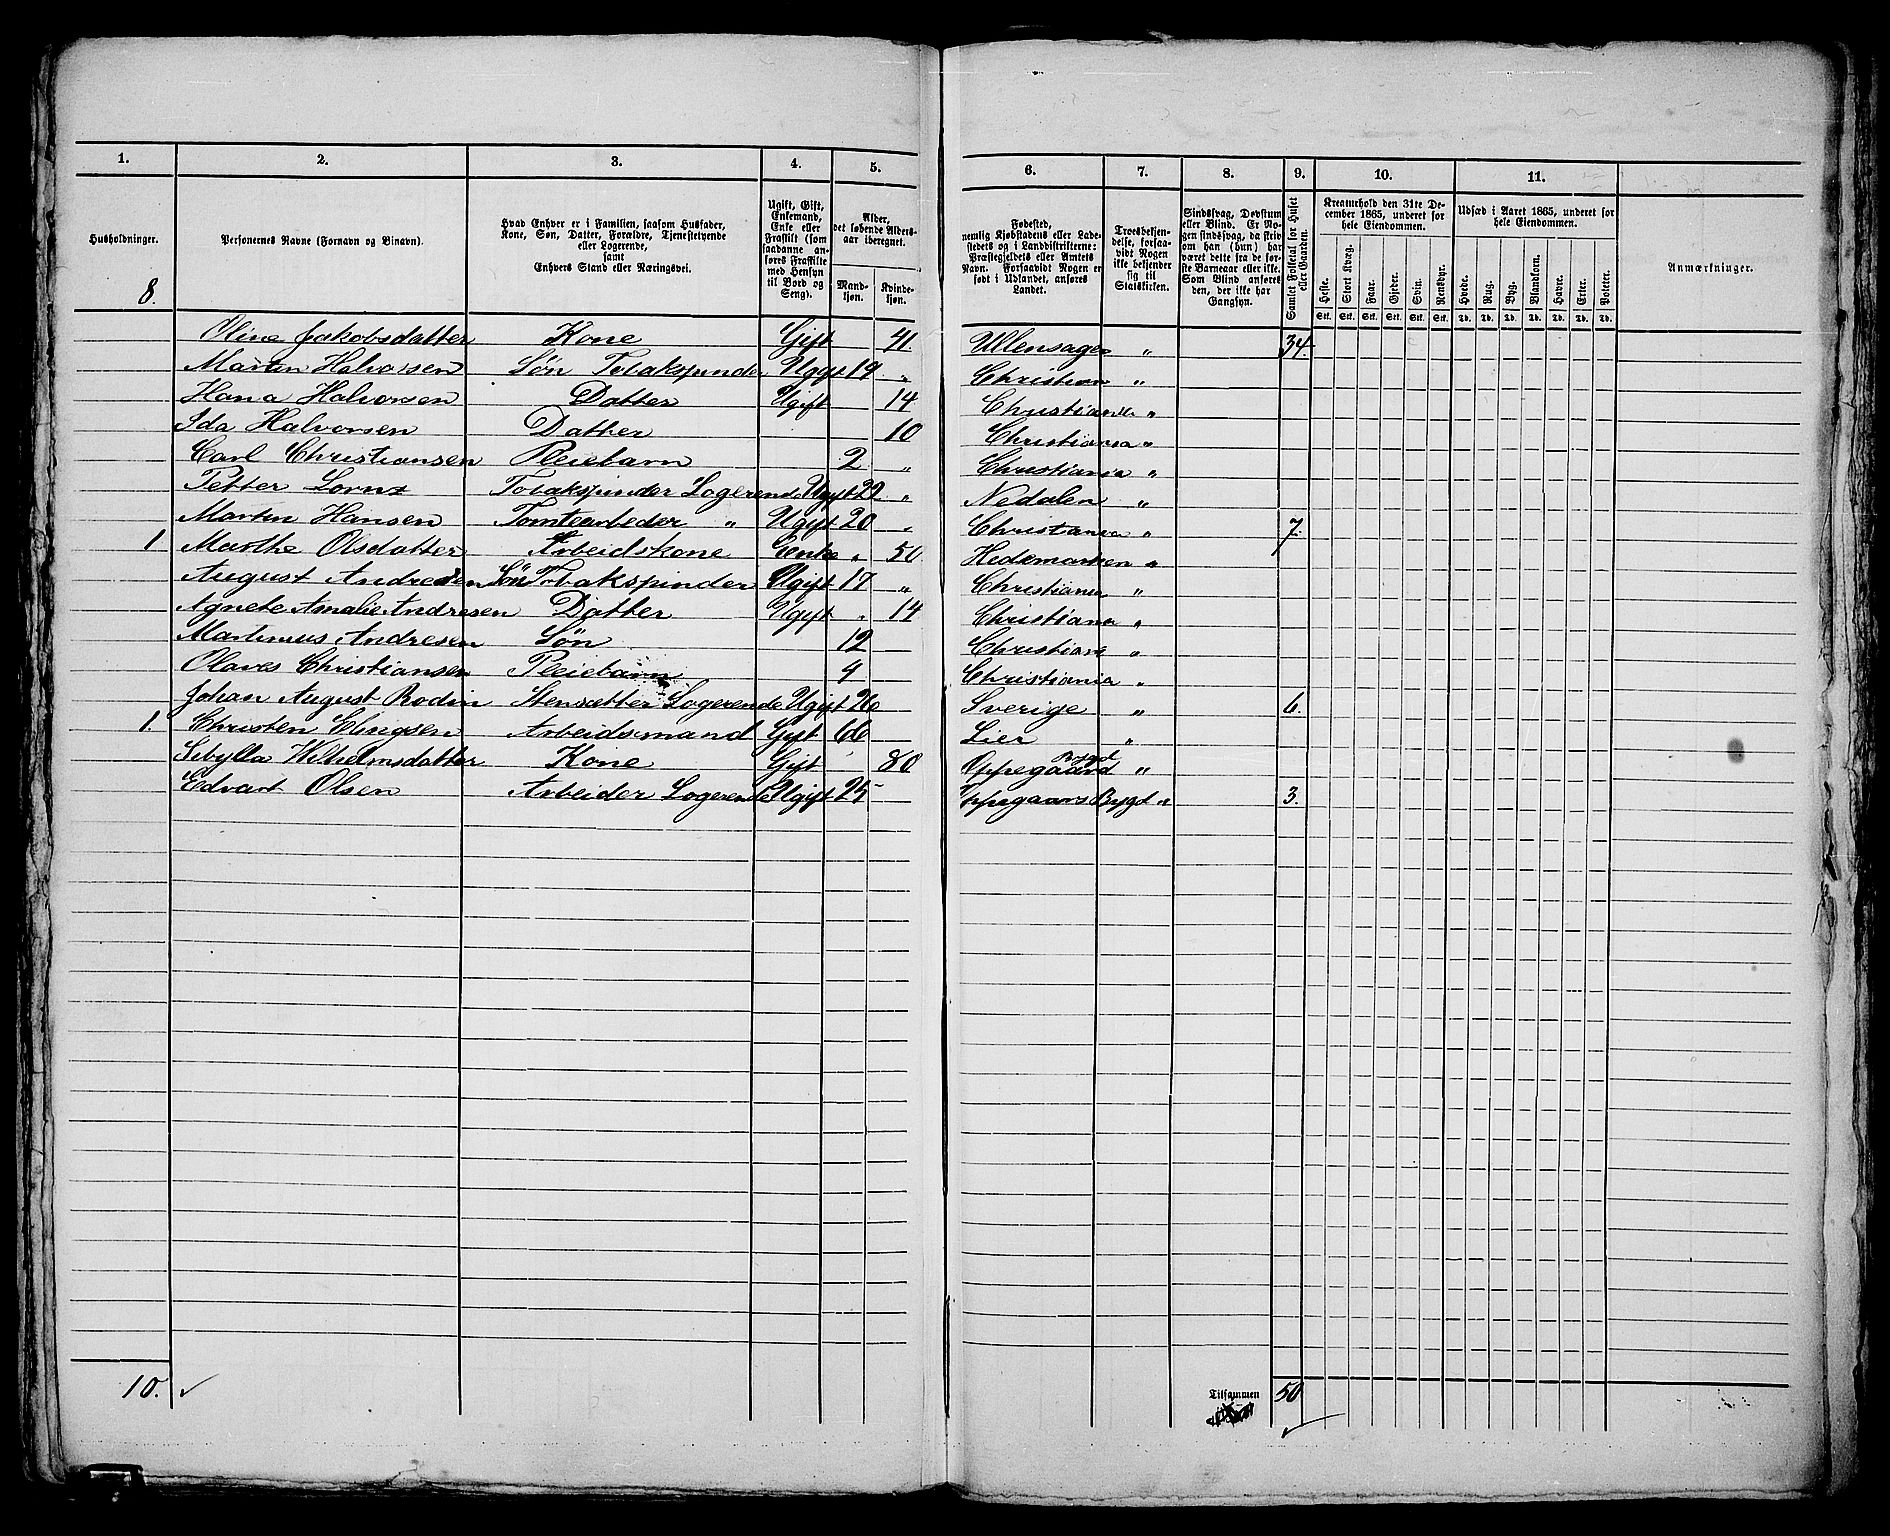 1. 2. 3. 4. 5. 6. 7. 8. 9. 10. 11.
Husholdninger.
Personernes Navne (Fornavn og Binavn).
Hvad Enhver er i Familien, saasom Husfader, Kone, Søn, Datter, Forældre, Tjenestetyende eller Logerende, samt Enhvers Stand eller Næringsvei.
Ugift, Gift, Enkemand, Enke eller Fraskilt (som saadanne anføres Fraskilte med Hensyn til Bord og Seng).
Alder, det løbende Aldersaar iberegnet.
Mandkjøn. Kvindekjøn.
Fødested, nemlig Kjøbstadens eller Ladestedets og i Landdistrikterne: Præstegjeldets eller Amtets Navn. Forsaavidt Nogen er født i Udlandet, anføres Landet.
Troesbekjendelse, forsaavidt Nogen ikke bekjender sig til Statskirken.
Sindssvag, Døvstum eller Blind. Er Nogen sindssvag, da skrives om han (hun) har været dette fra de første Barneaar eller ikke. Som Blind anføres den, der ikke har Gangsyn.
Samlet Folketal for Huset eller Gaarden.
Kreaturhold den 31te December 1865, underet for hele Eiendommen.
Heste. Stort Kvæg. Faar. Gjeder. Svin. Rensdyr.
Stk. Stk. Stk. Stk. Stk. Stk.
Udsæd i Aaret 1865, underet for hele Eiendommen.
Hvede. Rug. Byg. Blandkorn. Havre. Erter. Poteter.
Td. Td. Td. Td. Td. Td. Td.
Anmærkninger.
8.
Oline Jakobsdatter Kone Gift 41 Ullensager " 34.
Martin Halvorsen Søn Tobakspinder Ugift 19 " Christian "
Hana Halvorsen Datter Ugift 14 Christiania "
Ida Halvorsen Datter 10 Christiania "
Carl Christiansen Pleiebarn 2 " Christiania "
Petter Lornz Tobakspinder Logerende Ugift 20 " Nedalen "
Martin Hansen Tomtearbeder " Ugift 20 " Christiania " 7.
1 Marthe Olsdatter Arbeidskone Enke " 50 Hedemarken "
August Andresen Søn Tobakspinder Ugift 17 " Christiania "
Agnete Amalie Andresen Datter Ugift " 14 Christiania "
Martinius Andresen Søn 12 Christiania "
Olaves Christiansen Pleiebarn 4 Christiania "
Johan August Rodin Stensætter Logerende Ugift 26 Sverige " 6.
1. Christen Elingsen Arbeidsmand Gift 66 Lier "
Sibylla Wilhelmsdatter Kone Gift 80 Oppegaard Bygd "
Edvart Olsen Arbeider Logerende Ugift 25 Oppegaars Bygd " 3.
10. ✓ Tilsammen 50 ✓